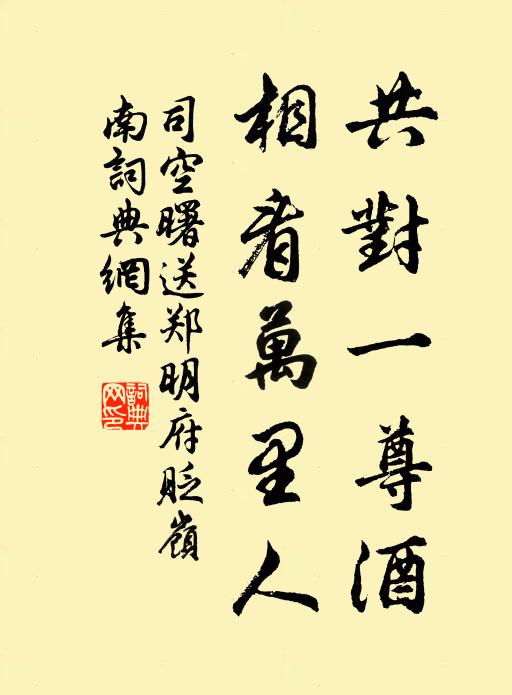 共對一尊酒
相看萬里人
司空曙送郑明府貶嶺
南詞典網集
詞典
网印